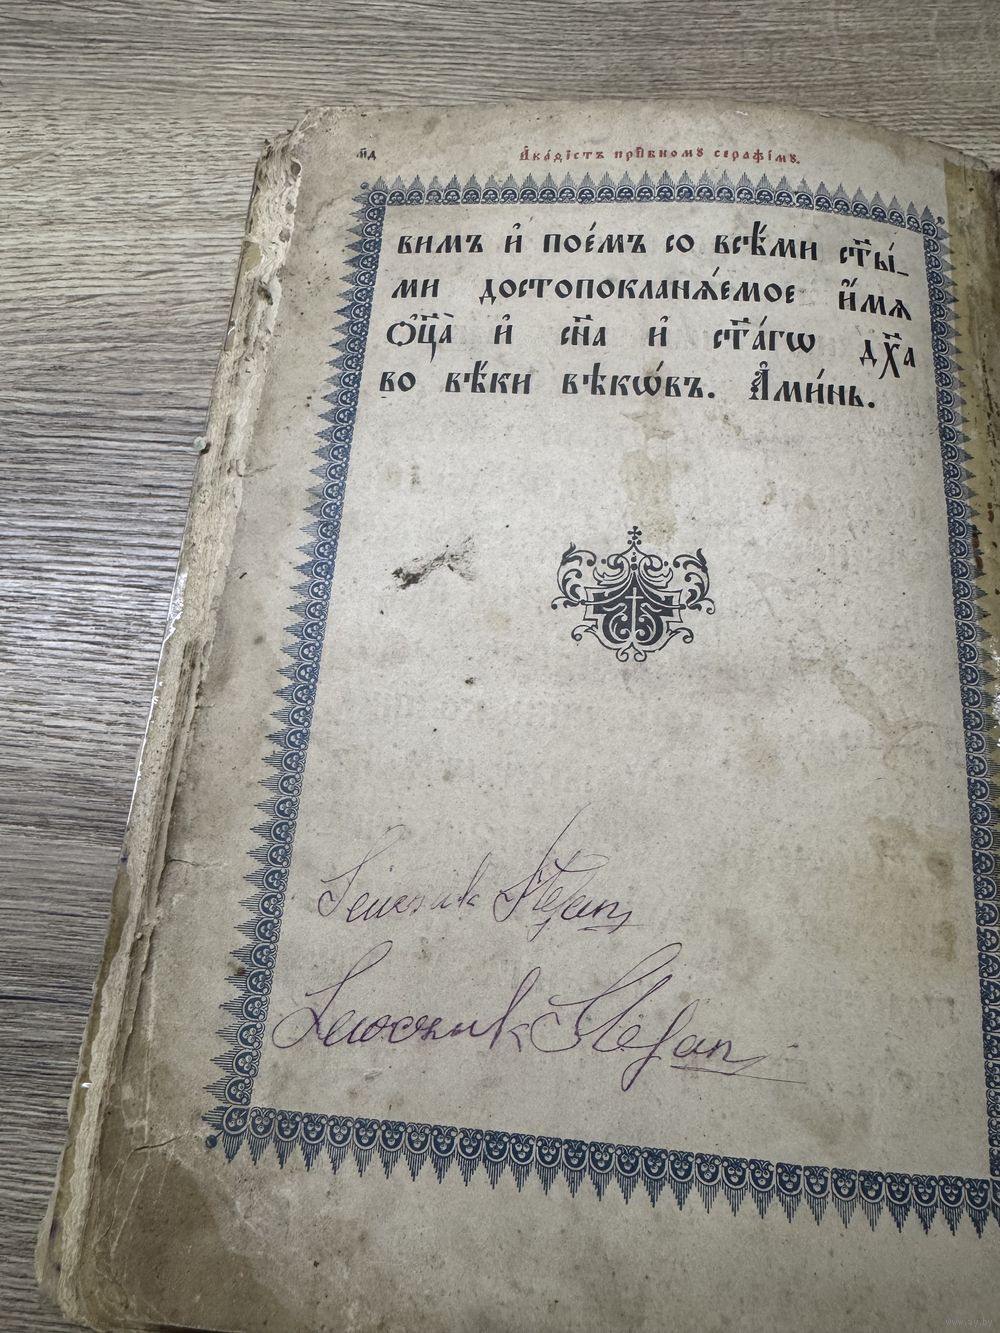 м҃д
А҆ка́ѳїстъ прпⷣбному серафі́му.
вимъ и҆ пое́мъ со всѣ́ми ст҃ы́_
ми достопокланѧ́емое и҆́мѧ
ѻ҆ц҃а̀ и҆ сн҃а и҆ ст҃а́гѡ дх҃а
во вѣ́ки вѣкѡ́въ. А҆ми́нь.
Stefan
Stefan
www.ay.by